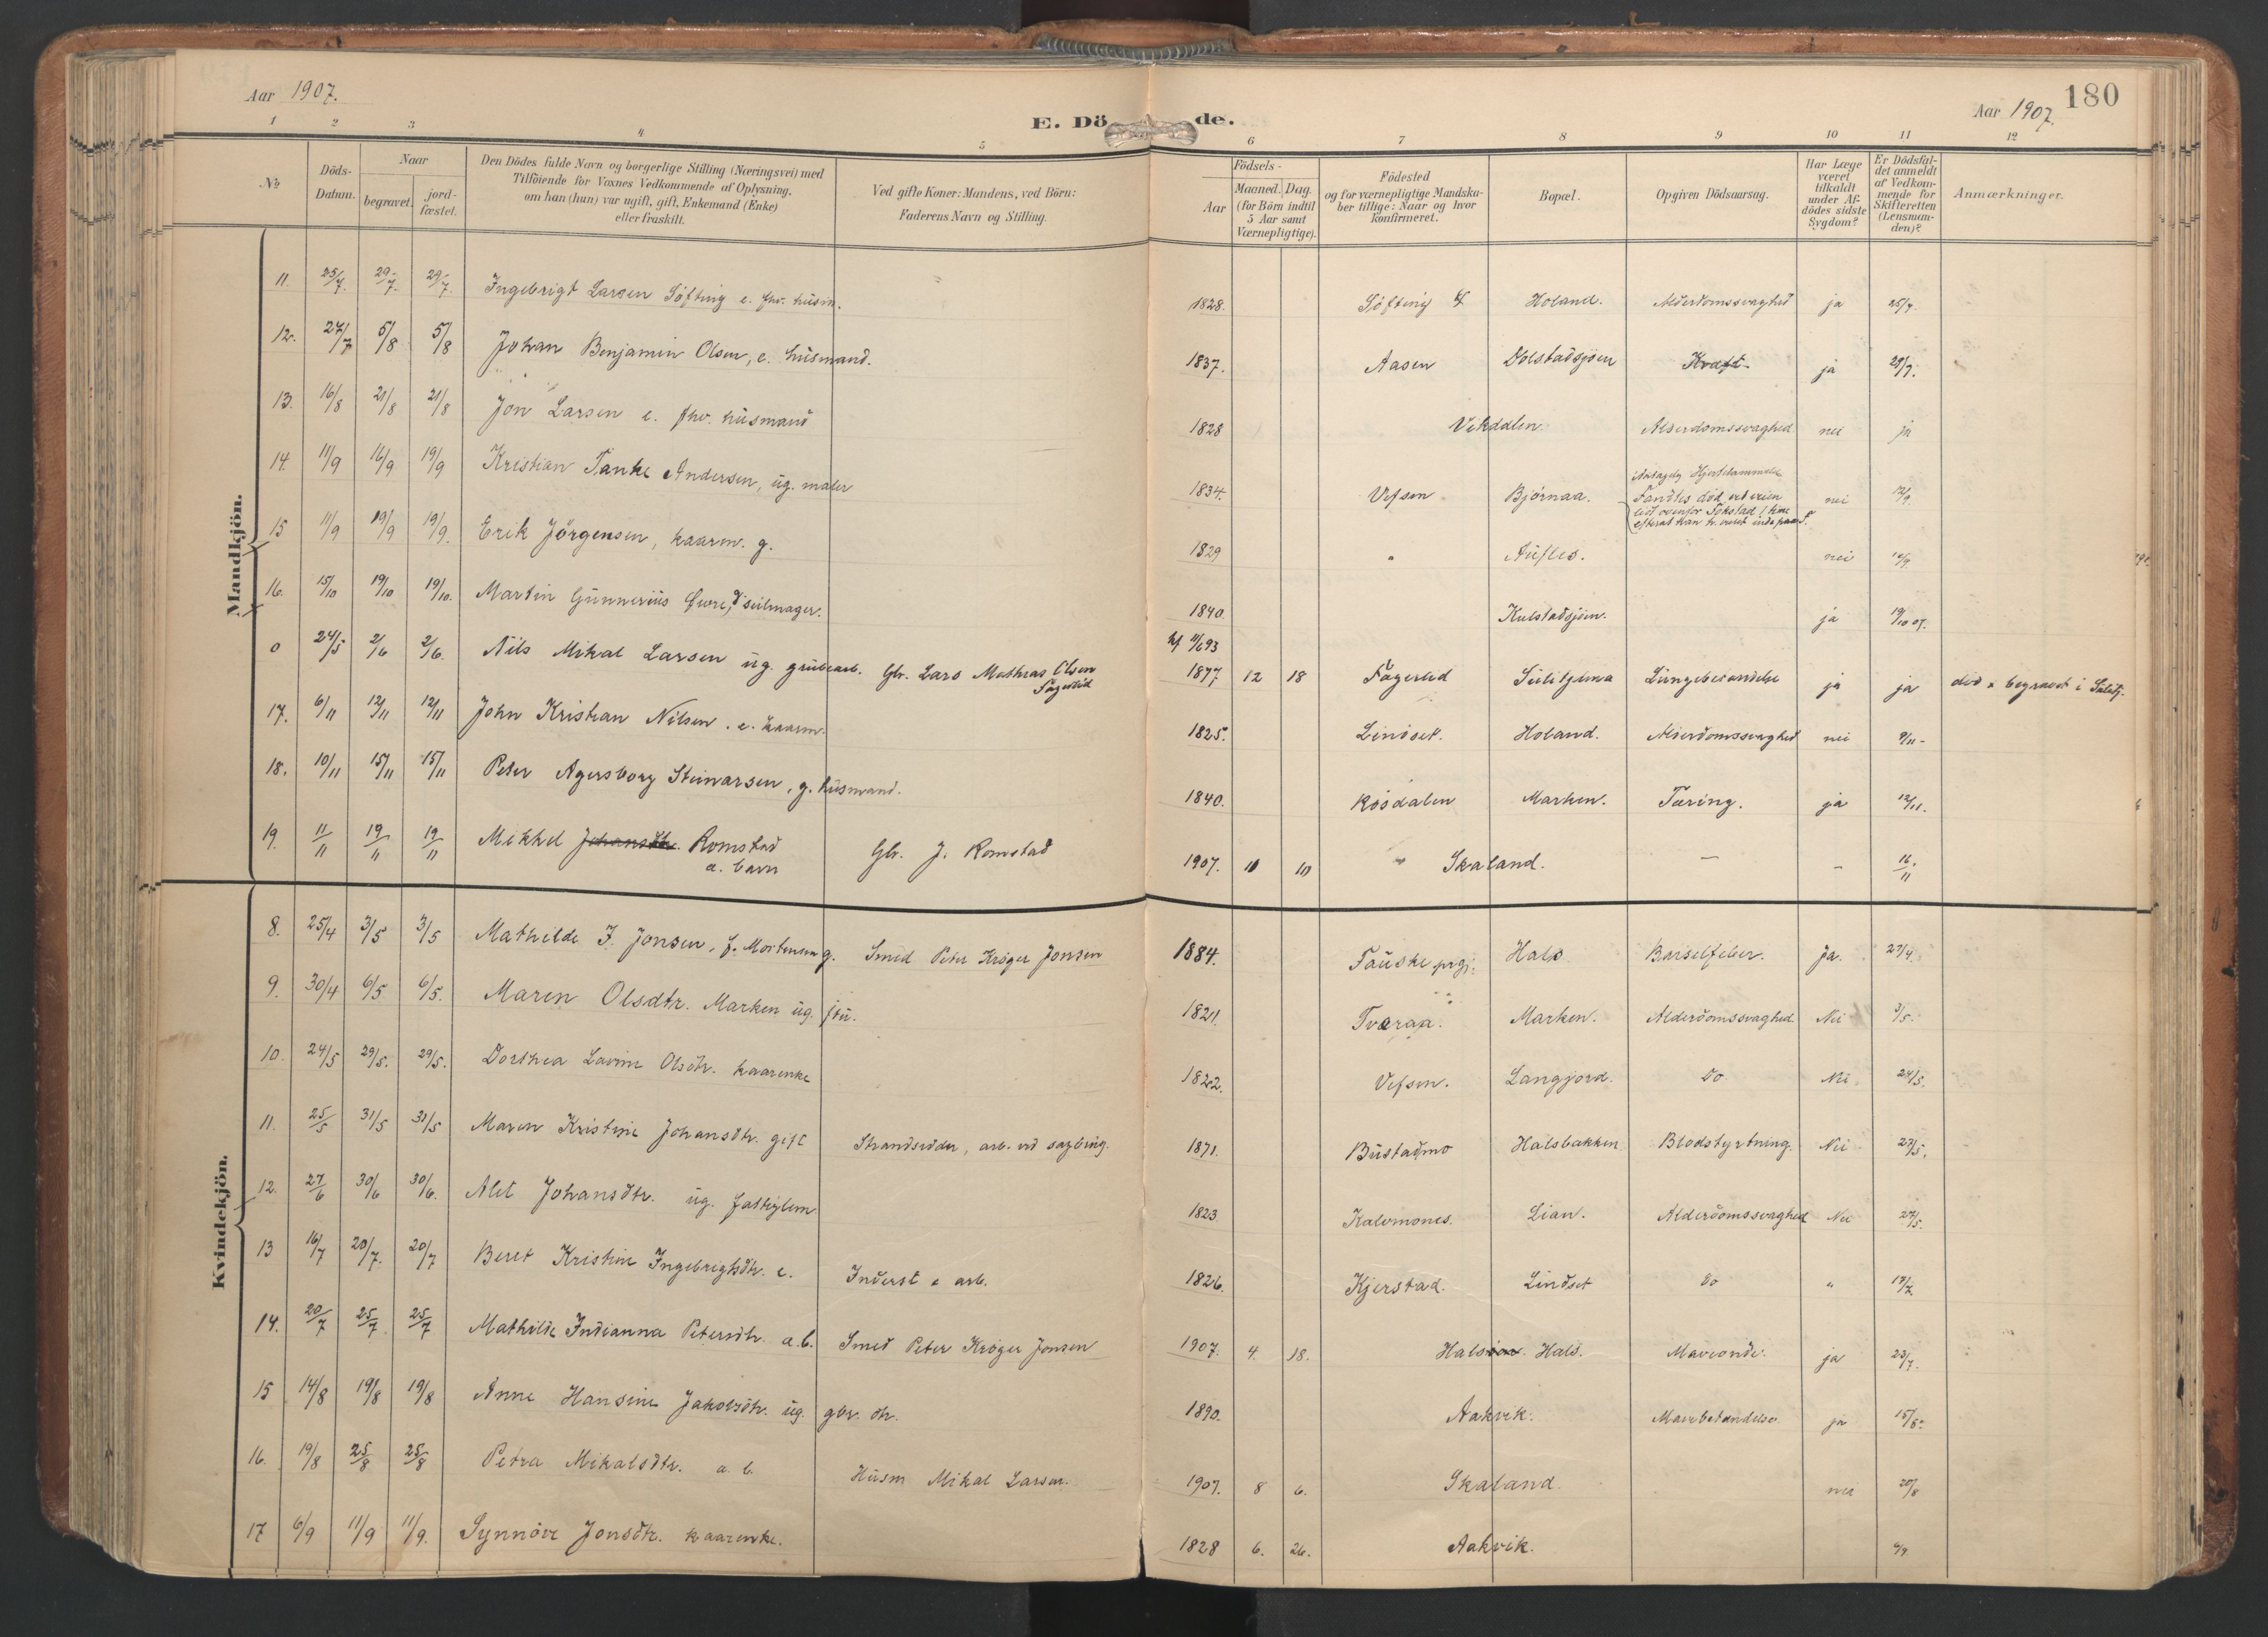 Aar 1907.
E. Dö de.
Aar 1907.
180
1 2 3 4 5 6 7 8 9 10 11 12
No
Döds-Datum.
Naar
begravet.
jord-fæstet.
Den Dödes fulde Navn og borgerlige Stilling (Næringsvei) med
Tilföiende for Voxnes Vedkommende af Oplysning,
om han (hun) var ugift, gift, Enkemand (Enke)
eller fraskilt.
Ved gifte Koner: Mandens, ved Börn:
Faderens Navn og Stilling.
Födsels-
Aar
Maaned. Dag.
(for Börn indtil
5 Aar samt
Værnepligtige).
Födested
og for værnepligtige Mandska-
ber tillige: Naar og hvor
konfirmeret.
Bopæl.
Opgiven Dödsaarsag.
Har Læge
været
tilkaldt
under Af-
dödes sidste
Sygdom?
Er Dödsfal-
det anmeldt
af Vedkom-
mende for
Skifteretten
(Lensman-
den)?
Anmærkninger.
Mandkjön.
11. 25/7. 29/7. 29/7. Ingebrigt Larsen Söfting e. fhv. husm. 1828. Söfting Holand. Alderdomssvaghed ja 25/7.
12. 27/7 5/8 5/8 Johan Benjamin Olsen, e. husmand. 1837. Aasen Dolstadsjöen Kræft ja 29/7.
13. 16/8 21/8 21/8 Jon Larsen e. fhv. husmand 1828 Vikdalen. Alderdomssvaghed nei ja
14. 11/9 16/9 19/9 Kristian Tanke Andersen, ug. maler 1834. Vefsen Björnaa. Hjertelammelse Fandtes död nei 12/9.
15 11/9 19/9 19/9. Erik Jörgensen, kaarm. g. 1829 " Aufles. nei
16. 15/10 19/10 19/10. Martin Gunnerius seilmager. 1840. Kulstadsjöen. ja 19/10 07.
0 24/5 2/6 2/6. Nils Mikal Larsen ug. grubearb. Gbr. Lars Mathias Olsen Fagerlid 1877 12 18 Fagerlid Sulitjelma Lungebetændelse ja ja död & begravet i Sulitj.
17. 6/11 12/11 12/11 John Kristian Nilsen. e. kaarm. 1825. Lindset. Holand. Alderdomssvaghed nei 9/11-
18. 10/11 15/11 15/11 Peter Agersborg Steinarsen, g. husmand. 1840. Rösdalen Marken. Tæring. ja 12/11.
19. 11/11 19/11 19/11 Mikkel Johansdtr. Romstad a. barn Gbr. J. Romstad 1907. 10 10 " Skaland. — – 16/11
Kvindekjön.
8. 25/4 3/5 3/5 Mathilde J. Jonsen, f. Mortensen g. Smed Peter Kröger Jonsen 1884. Fauske prgj. Hals Barselfeber. Ja. 27/4.
9. 30/4 6/5 6/5. Maren Olsdtr. Marken ug. 1821. Tveraa. Marken. Alderdomssvaghed. Nei 3/5.
10. 24/5 29/5. 29/5. Dorthea Lavine Olsdtr. kaarenke 1822. Vefsen. Langjord. Do Nei 24/5.
11. 25/5 31/5 31/5 Maren Kristine Johansdtr. gift Strandsidder, arb. ved 1871. Bustadmo Halsbakken Blodstyrtning. Nei 27/5.
12. 27/6 30/6 30/6. Alet Johansdtr. ug. fattiglem. 1823. Kalvmones. Lian. Alderdomssvaghed Nei 27/5.
13 16/7 20/7. 20/7 Beret Kristine Ingebrigtsdtr. e. Inderst & arb. 1826. Kjerstad. Lindset Do " 19/7.
14. 20/7 25/7 25/7 Mathilde Indianna Petersdtr. a. b. Smed Peter Kröger Jonsen 1907. 4. 18. Hals. Maveonde. ja 23/7.
15 14/8 19/8 19/8 Anne Hansine Jakobsdtr. ug. gbr. dtr. 1890. Aakvik. Mavebetændelse ja 15/8.
16. 19/8 25/8 25/8 Petra Mikalsdtr. a. b. Husm Mikal Larsen. 1907. 8 6. Skaland. nei 20/8
17 6/9 11/9 11/9. Synnöve Jonsdtr. kaarenke. 1828 6. 26. Aakvik.